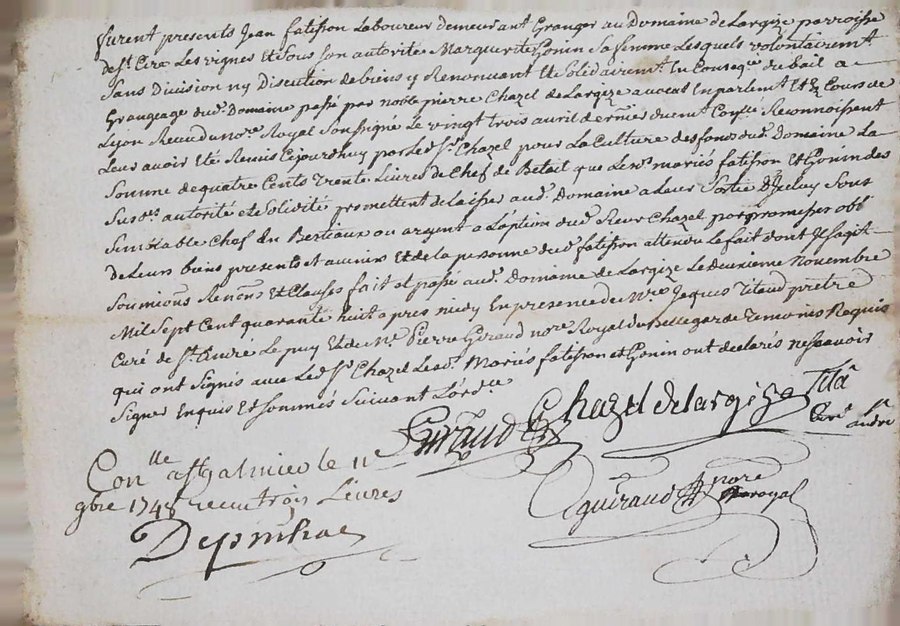 furent presents Jean fatisson Laboureur demeurant Granger au Domaine de Largize parroisse
de St. Cire Les vignes et sous son autorité Marguerite Gonin sa femme Lesquels volontairemt.
sans Division ny Discution de biens y Renoncant et solidairemt. En Conseqce. du bail a
Grangeage dud. Domaine passé par noble pierre Chazel de Largize avocat En parlement et Es Cours de
Lyon Recu du nore. Royal soussigné Le vingt trois avril dernier duemt. Conlle. Reconnoissent
Leur avoir eté Remis Cejourdhuy par Led. Sr. Chazel pour La Culture des fonds dud. Domaine La
somme de quatre Cents Trente Livres de Chef de Betail que Lesd. mariés fatisson et Gonin des
susd. autorité et solidité promettent de laisser aud. Domaine a Leur sortie D'Iceluy sous
semblable Chef En Bestiaux ou argent a L'option dud. sieur Chazel par promesses obl
de Leurs biens presents et avenir et de la personne dud. fatisson attendu Le fait dont Il sagit
soumions Renons et Clauses fait et passé aud. Domaine de Largize Le deuxieme Novembre
Mil sept Cent quarante huit apres midy En presence de Mre. Jaques Titaud pretre
Curé de St. André Le puy et de Me Pierre Giraud nore Royal de Bellegarde Temoins Requis
qui ont signés avec Led. Sr. Chazel Lesd. Mariés fatisson et Gonin ont declarés ne scavoir
signer Enquis et sommés suivant L'ordce
Giraud Chazel de largize
Curé St andré
Conlle a St galmier le 11e
9bre 1748 recu trois Livres
guiraud nore royal